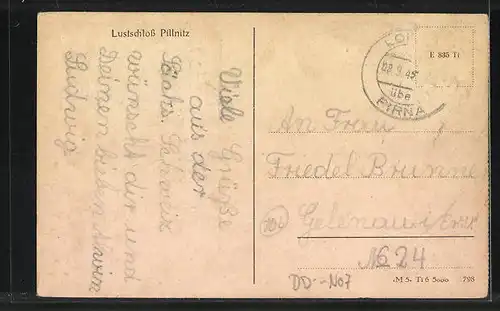 Lustschloß Pillnitz
Viele Grüße
aus der
Sächs. Schweiz
wünscht dir und
Deinen lieben
Ludwig
E 835 Tt
über
PIRNA
An Frau
Friedel Brunner
Gelenau i. Erz.
№ 24
DD.-No7
-M 5- Tt 6 5000 798